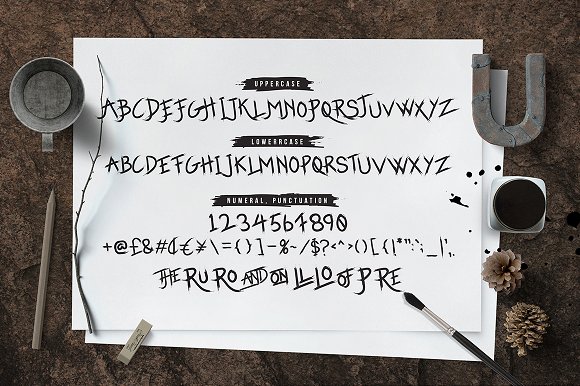 UPPERCASE
ABCDEFGHIJKLMNOPQRSTUVWXYZ
LOWERRCASE
ABCDEFGHIJKLMNOPQRSTUVWXYZ
NUMERAL, PUNCTUATION
1234567890
+@£&#₵€¥\=()]-%~/$?<^>()[{|*"':;_|',.
THE RU RO AND ON LL LO OF P RE